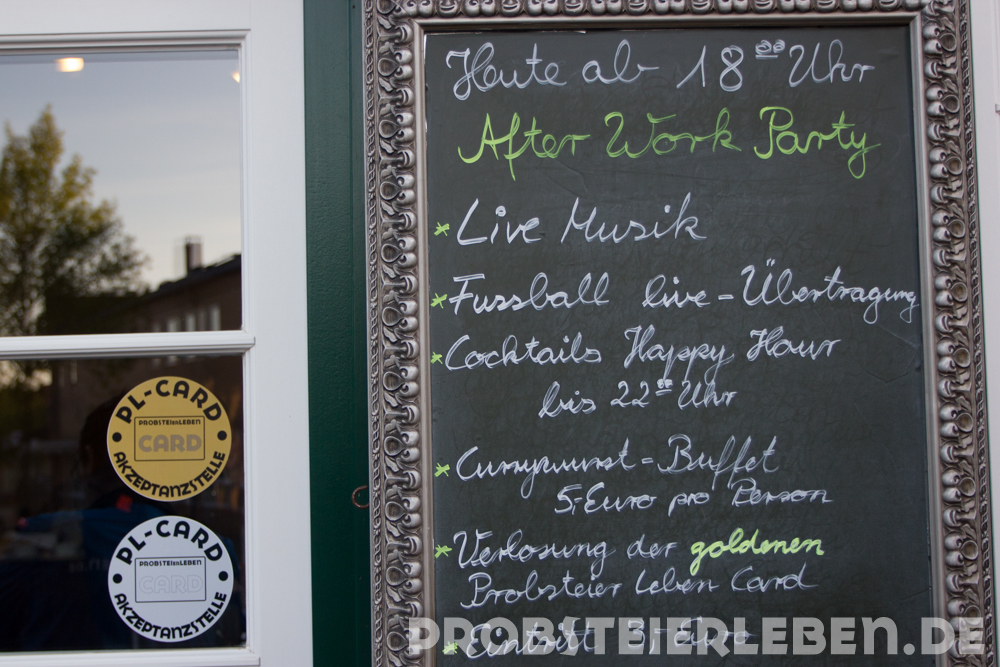 Heute ab 18 00 Uhr
After Work Party
* Live Musik
* Fussball live - Übertragung
* Cocktails Happy Hour
bis 22 00 Uhr
* Currywurst - Buffet
5,- Euro pro Person
* Verlosung der goldenen
Probsteier Leben Card
* Eintritt 3,- Euro
PL-CARD
PROBSTEIERLEBEN
CARD
AKZEPTANZSTELLE
PL-CARD
PROBSTEIERLEBEN
CARD
AKZEPTANZSTELLE
PROBSTEIERLEBEN.DE